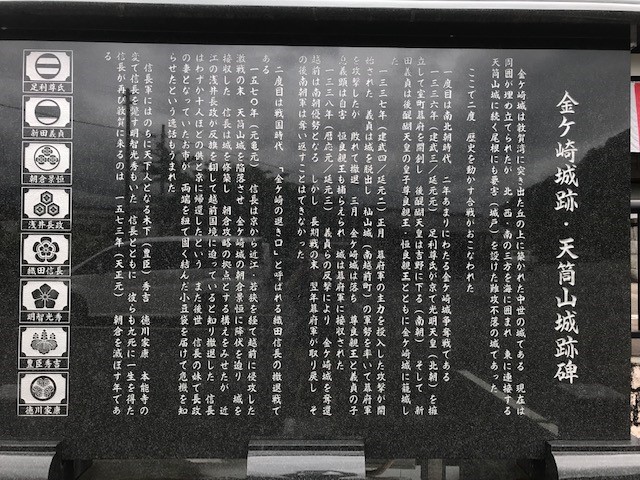 金ケ崎城跡・天筒山城跡碑
金ケ崎城は敦賀湾に突き出た丘の上に築かれた中世の城である 現在は
周囲が埋め立てられたが 北、西、南の三方を海に囲まれ 東に連接する
天筒山城に続く尾根にも塁害（城戸）を設けた難攻不落の城であった
ここで二度 歴史を動かす合戦がおこなわれた
一度目は南北朝時代 二年あまりにわたる金ケ崎城争奪戦である
一三三六年（建武三／延元元） 足利尊氏が京で光明天皇（北朝）を擁
立して室町幕府を開創し 後醍醐天皇は吉野に下る（南朝） そして 新
田義貞は後醍醐天皇の皇子尊良親王 恒良親王とともに金ケ崎城に籠城し
た
一三三七年（建武四／延元二）正月 幕府軍の主力を投入した攻撃が開
始された 義貞は城を脱出し 杣山城（南越前町）の軍勢を率いて幕府軍
を攻撃したが 敗れて撤退 三月 金ケ崎城は落ち 尊良親王と義貞の子
息義顕は自害 恒良親王も捕らえられ 城は幕府軍に接収された
一三三八年（暦応元／延元三） 義貞らの反撃により 金ケ崎城を奪還
越前は南朝優勢となる しかし 長期戦の末 翌年幕府軍が取り戻し そ
の後南朝軍は奪い返すことはできなかった
二度目は戦国時代 「金ケ崎の退き口」と呼ばれる織田信長の撤退戦で
ある
一五七〇年（元亀元） 信長は京から近江、若狭を経て越前に侵攻した
激戦の末 天筒山城を陥落させ 金ケ崎城の朝倉景恒に降伏を迫り 城を
接収した 信長は城を修築し 朝倉攻略の拠点とする構えをみせたが 近
江の浅井長政が反旗を翻して越前国境に迫っていると知り撤退した 信長
はわずか十人ほどの供と京に帰還したという また後世 信長の妹で長政
の妻となっていたお市が 両端を紐で固く結んだ小豆袋を届けて危機を知
らせたという逸話もうまれた
信長軍にはのちに天下人となる木下（豊臣）秀吉 徳川家康 本能寺の
変で信長を襲う明智光秀もいた 信長とともに 彼らも九死に一生を得た
信長が再び敦賀に来るのは 一五七三年（天正元） 朝倉を滅ぼす年であ
る
足利尊氏
新田義貞
朝倉景恒
浅井長政
織田信長
明智光秀
豊臣秀吉
徳川家康